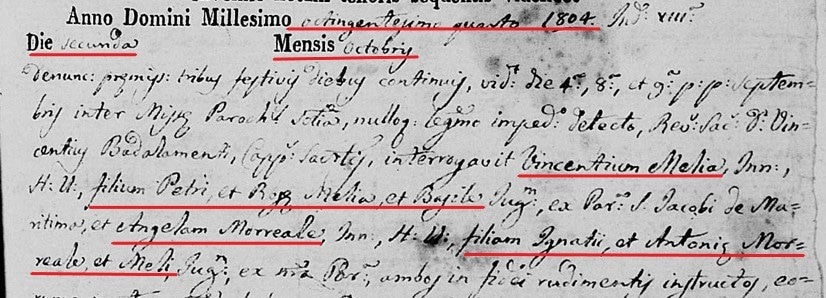 tenoris sequentis
Anno Domini Millesimo octingentesimo quarto 1804. Ind: XIII:
Die secunda Mensis Octobris
Denunc: premis: tribus festivis diebus continuis, vid: die 4:, 8:, et 9: p:p: Septem=
bris inter Paroch: nulloq: imped: detecto, Rev: Sac: D: Vin=
centius Badalamenti, Capp: interrogavit Vincentium Melia, Inn:,
H: U:, filium Petri, et Melia, et Basile Jug:, ex Par: S: Jacobi de Ma=
ritima, et Angelam Morreale, Inn:, H: U:, filiam Ignatii, et Antonię Mor=
reale, et Meli, Jug:, ex Par:, ambos in fidei rudimentis instructos, eo=